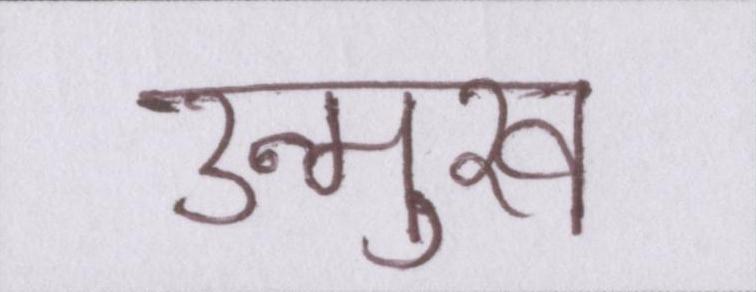 उन्मुख